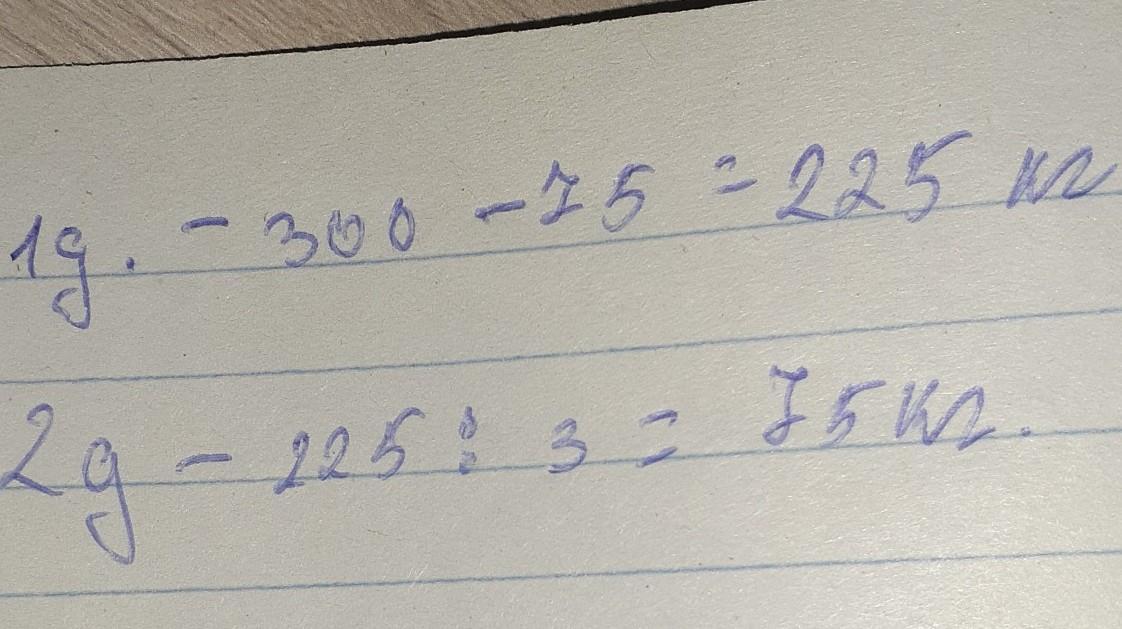 1д. - 300 - 75 = 225 кг
2д - 225 : 3 = 75 кг.